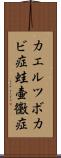 カエルツボカビ症蛙壷黴症